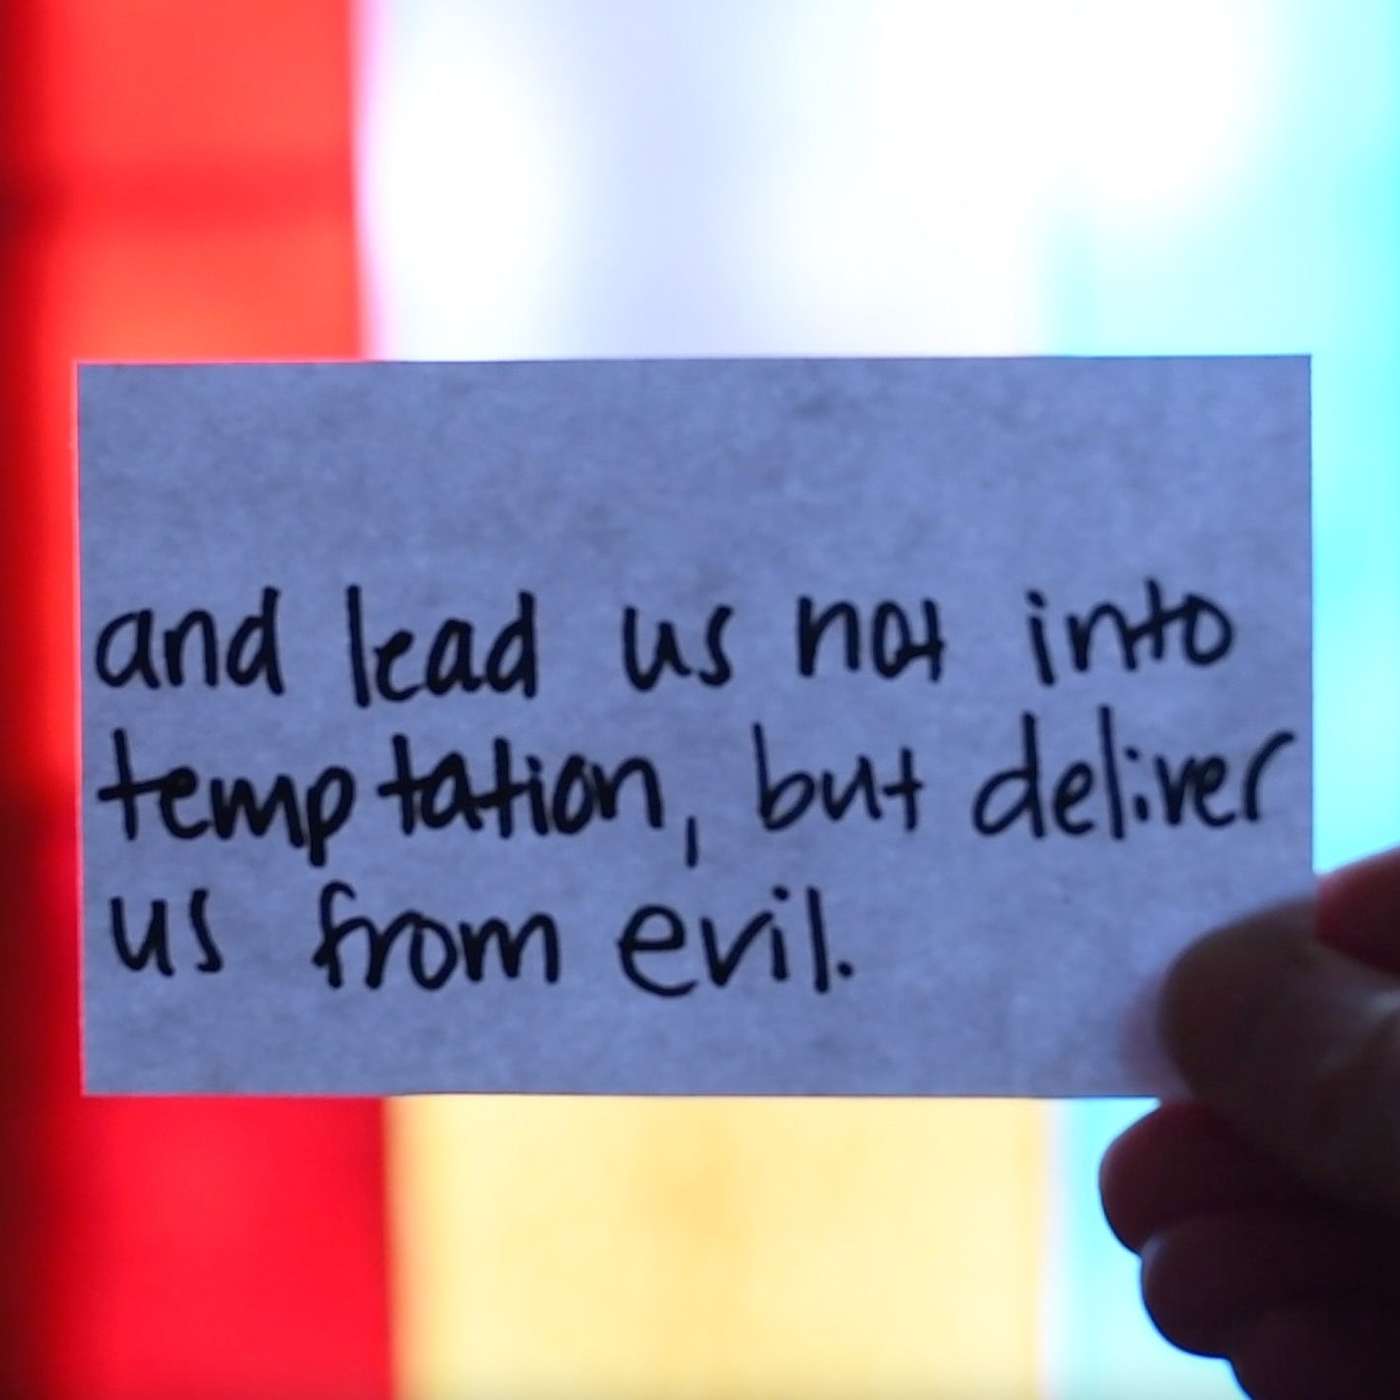 and lead us not into
temptation, but deliver
us from evil.